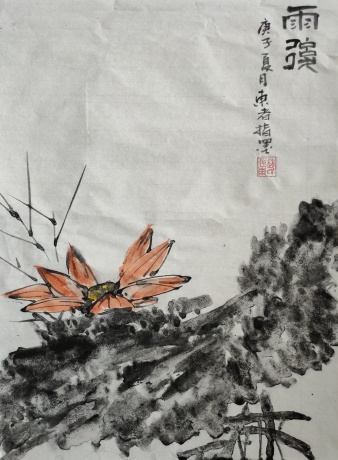 雨後
庚子夏月東者指墨